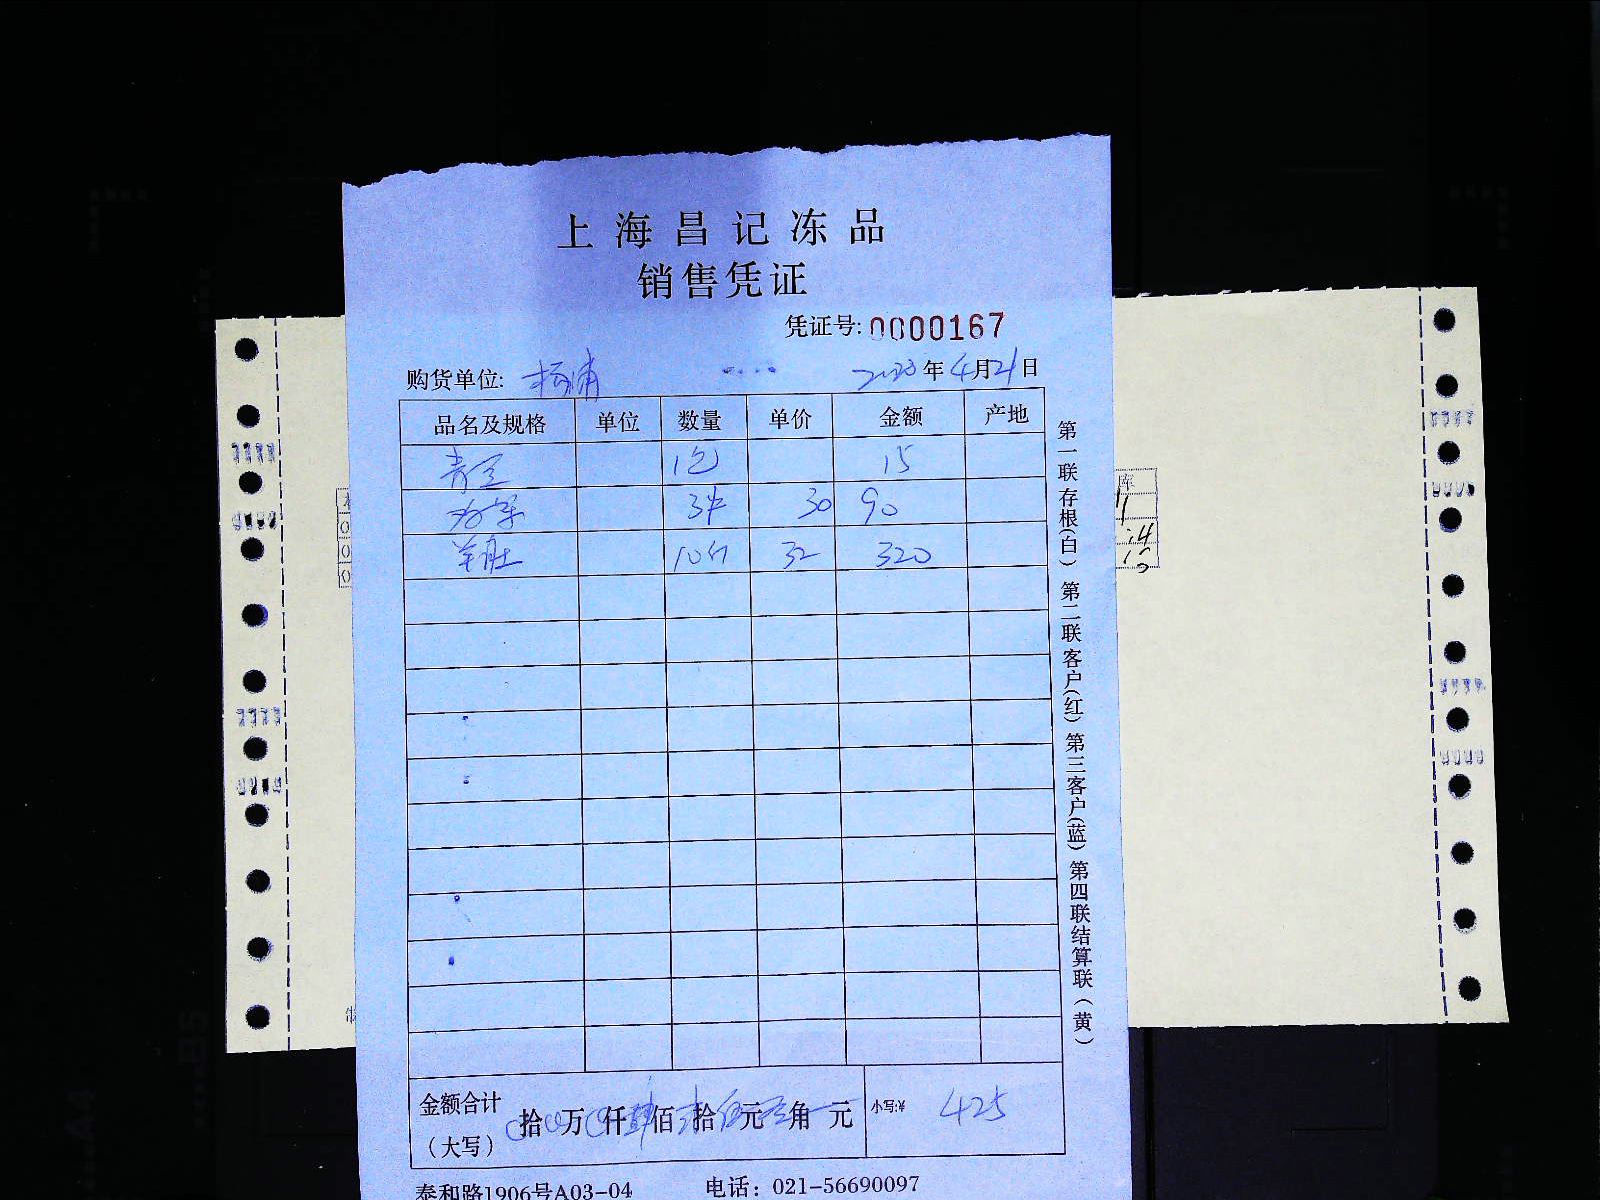 上海昌记冻品
销售凭证
凭证号: 0000167
购货单位: 杨浦 2023年4月21日
品名及规格 单位 数量 单价 金额 产地
青豆 1包 15
3件 30 90
羊肚 10斤 32 320
第一联存根(白) 第二联客户(红) 第三客户(蓝) 第四联结算联(黄)
金额合计
(大写) 拾 万 仟肆佰 拾 元 角 元 小写:¥ 425
泰和路1906号A03-04 电话: 021-56690097
库